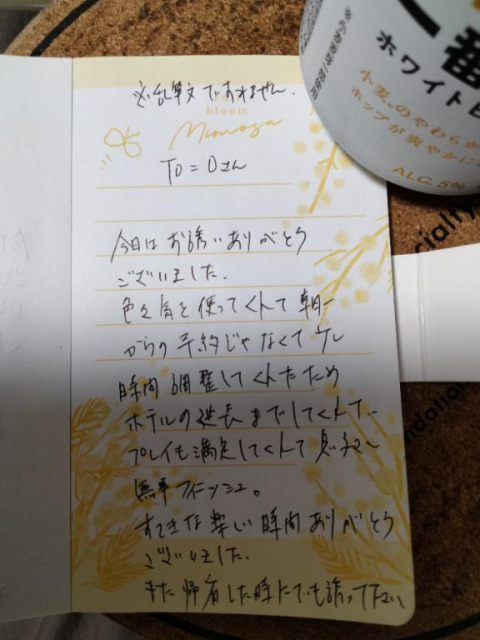 ※乱筆文ですみません。
bloom
Mimosa
To = Dさん
今日はお誘いありがとう
ございました。
色々気を使ってくれて朝一
からの予約じゃなくて少し
時間調整してくれたため
ホテルの延長までしてくれて、
プレイも満足してくれて息子〜
無事フィニッシュ。
すてきな楽しい時間ありがとう
ございました。
また帰省した時にでも誘って下さい
一番
ホワイトビ
小麦のやわらか
ホップが爽やかに
ALC.5%
cialty
ndalian